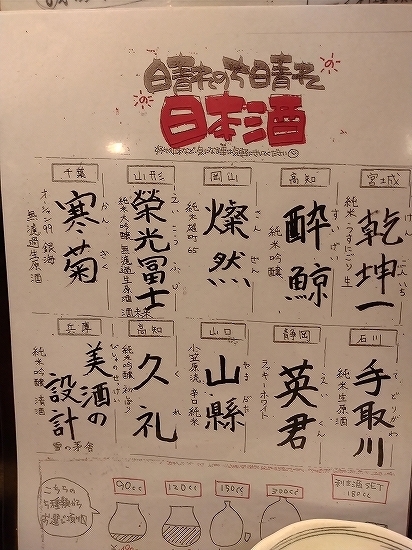 日晴れのち日晴れ
日本酒
宮士城
乾坤一
けんこんいち
純米・うすにごり生
高知
酔鯨
すいげい
純米吟醸
岡山
燦然
さんぜん
純米雄町65
山形
榮光冨士
えいこうふじ
純米大吟醸無濾過生原酒
千葉
寒菊
かんぎく
オーシャン99 銀海
無濾過生原酒
石川
手取川
てどりがわ
純米生原酒
静岡
英君
えいくん
ラッキーホワイト
山口
山縣
やまがた
小笠原流 辛口純米
高知
久礼
くれ
純米吟醸
兵庫
美酒の設計
びしゅのせっけい
純米吟醸 清酒
雪の茅舎
こちらの
5種類から
お選び頂け
90cc
120cc
150cc
300cc
利き酒SET
180cc